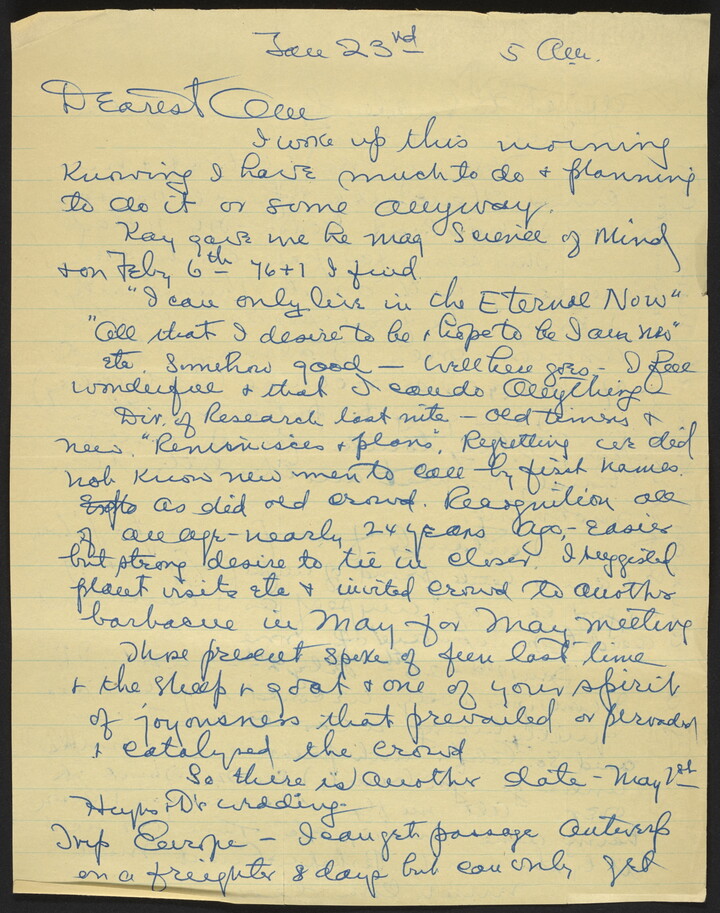 Jan 23rd 5 Am.
Dearest
I woke up this morning
knowing I have much to do + planning
to do it or some anyway.
Kay gave me the mag Science of Mind
+ on Feby 6th 76+1 I find
"I can only live in the Eternal Now"
"All that I desire to be + hope to be I am now"
etc. Somehow good – well here goes – I feel
wonderful + that I can do Anything
Div. of Research last nite – old timers +
new. "Reminisces + plans". Regretting we did
not know new men to call by first names.
as did old crowd. Recognition all
of an age – nearly 24 years ago, – easier
but strong desire to tie in closer. I suggested
plant visits etc + invited crowd to another
barbacue in May for May meeting
Those present spoke of fun last time
+ the sheep + goat + one of your spirit
of joyousness that prevailed or pervaded
+ catalyzed the crowd
So there is another date – May 1st
wedding –
Trip Europe – I can get passage Antwerp
on a freighter 8 days but can only get